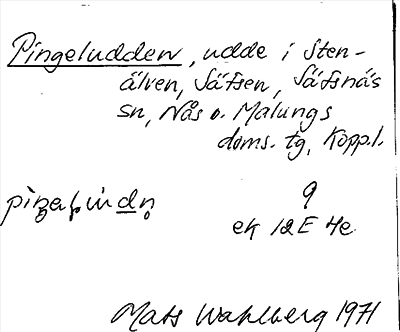 Pingeludden, udde i Sten-
älven, Säfsen, Säfsnäs
sn, Nås o. Malungs
doms. tg, Kopp.l.
9
ek 12E 4e
Mats Wahlberg 1971